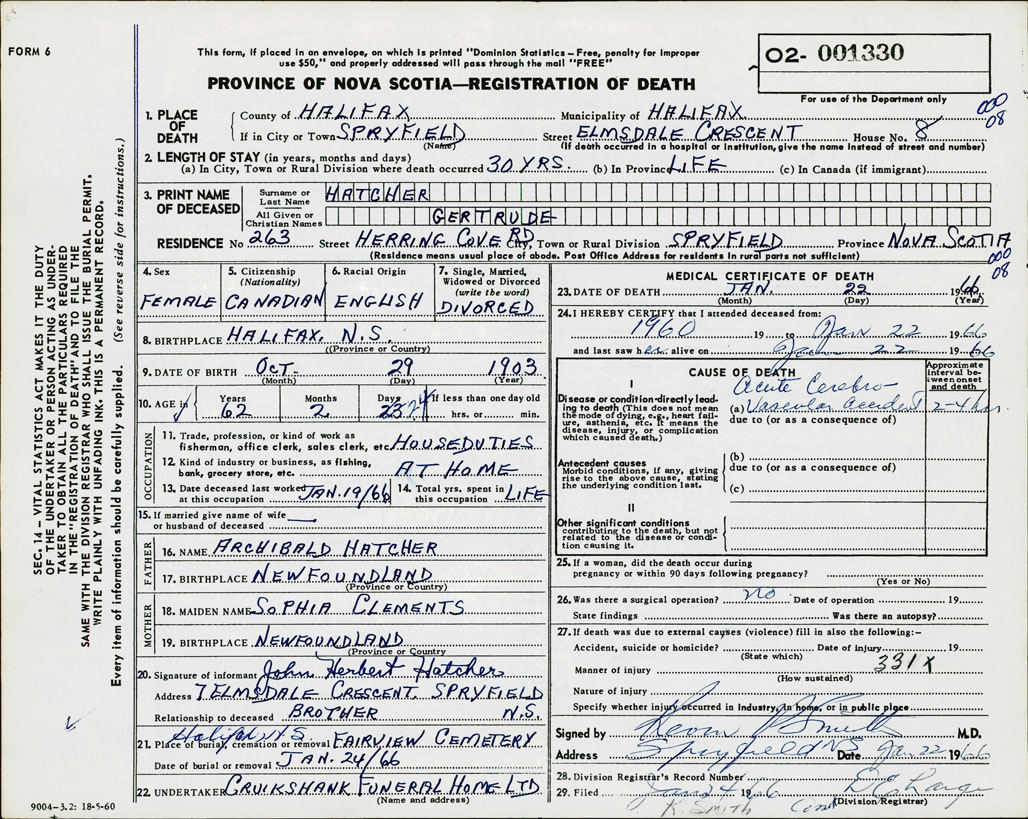 FORM 6
This form, if placed in an envelope, on which is printed "Dominion Statistics – Free, penalty for improper
use $50," and properly addressed will pass through the mail "FREE"
02- 001330
PROVINCE OF NOVA SCOTIA—REGISTRATION OF DEATH
For use of the Department only
000
08
1. PLACE OF DEATH
County of HALIFAX Municipality of HALIFAX
If in City or Town SPRYFIELD Street ELMSDALE CRESCENT House No. 8
(Name) (If death occurred in a hospital or institution, give the name instead of street and number)
2. LENGTH OF STAY (in years, months and days)
(a) In City, Town or Rural Division where death occurred 30 YRS. (b) In Province LIFE (c) In Canada (if immigrant)
3. PRINT NAME OF DECEASED
Surname or Last Name HATCHER
All Given or Christian Names GERTRUDE
RESIDENCE No 263 Street HERRING COVE RD City, Town or Rural Division SPRYFIELD Province NOVA SCOTIA
(Residence means usual place of abode. Post Office Address for residents in rural parts not sufficient)
000
08
4. Sex
FEMALE
5. Citizenship
(Nationality)
CANADIAN
6. Racial Origin
ENGLISH
7. Single, Married,
Widowed or Divorced
(write the word)
DIVORCED
8. BIRTHPLACE HALIFAX, N.S.
(Province or Country)
9. DATE OF BIRTH OCT. 29 1903
(Month) (Day) (Year)
10. AGE in Years Months Days If less than one day old
62 2 23 24 hrs. or min.
OCCUPATION
11. Trade, profession, or kind of work as
fisherman, office clerk, sales clerk, etc. HOUSEDUTIES
12. Kind of industry or business, as fishing,
bank, grocery store, etc. AT HOME
13. Date deceased last worked
at this occupation JAN. 19/66
14. Total yrs. spent in
this occupation LIFE
15. If married give name of wife
or husband of deceased
FATHER
16. NAME ARCHIBALD HATCHER
17. BIRTHPLACE NEWFOUNDLAND
(Province or Country)
MOTHER
18. MAIDEN NAME SOPHIA CLEMENTS
19. BIRTHPLACE NEWFOUNDLAND
(Province or Country)
20. Signature of informant John Herbert Hatcher
Address 7 ELMSDALE CRESCENT, SPRYFIELD
Relationship to deceased BROTHER N.S.
Halifax N.S.
21. Place of burial, cremation or removal FAIRVIEW CEMETERY
Date of burial or removal JAN. 24/66
22. UNDERTAKER CRUIKSHANK FUNERAL HOME LTD
(Name and address)
MEDICAL CERTIFICATE OF DEATH
23. DATE OF DEATH JAN. 22 1966
(Month) (Day) (Year)
24. I HEREBY CERTIFY that I attended deceased from:
1960 19 to Jan 22 1966
and last saw her alive on Jan 22 1966
CAUSE OF DEATH
Approximate
interval be-
tween onset
and death
I
Disease or condition directly lead-
ing to death (This does not mean
the mode of dying, e.g., heart fail-
ure, asthenia, etc. It means the
disease, injury, or complication
which caused death.)
Acute Cerebro
(a) Vascular Accident 2-4 hrs.
due to (or as a consequence of)
Antecedent causes
Morbid conditions, if any, giving
rise to the above cause, stating
the underlying condition last.
(b)
due to (or as a consequence of)
(c)
II
Other significant conditions
contributing to the death, but not
related to the disease or condi-
tion causing it.
25. If a woman, did the death occur during
pregnancy or within 90 days following pregnancy?
(Yes or No)
26. Was there a surgical operation? no Date of operation 19
State findings Was there an autopsy?
27. If death was due to external causes (violence) fill in also the following:-
Accident, suicide or homicide? Date of injury 19
(State which)
331X
Manner of injury
(How sustained)
Nature of injury
Specify whether injury occurred in industry, in home, or in public place
Signed by Kevin P Smith M.D.
Address Spryfield NS Date Jan 22 1966
28. Division Registrar's Record Number
29. Filed Jan 24 1966
(Division Registrar)
K. SMITH
SEC. 14 – VITAL STATISTICS ACT MAKES IT THE DUTY
OF THE UNDERTAKER OR PERSON ACTING AS UNDER-
TAKER TO OBTAIN ALL THE PARTICULARS REQUIRED
IN THE "REGISTRATION OF DEATH" AND TO FILE THE
SAME WITH THE DIVISION REGISTRAR WHO SHALL ISSUE THE BURIAL PERMIT.
WRITE PLAINLY WITH UNFADING INK. THIS IS A PERMANENT RECORD.
Every item of information should be carefully supplied. (See reverse side for instructions.)
9004-3.2: 18-5-60